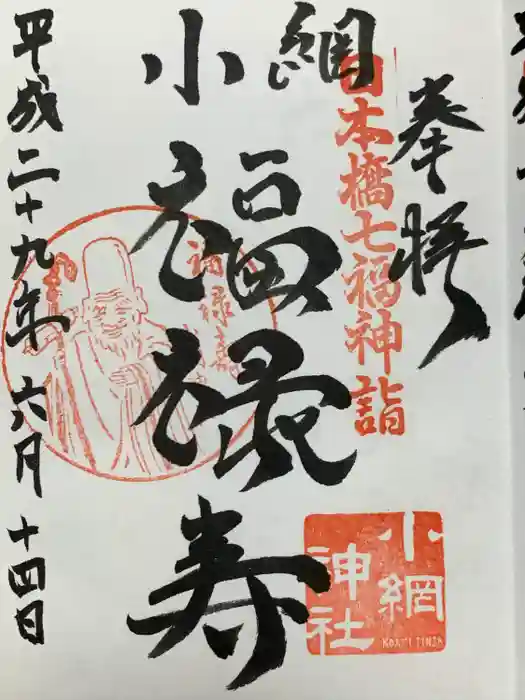 奉拝
日本橋七福神詣
小網
福禄寿
福禄寿
小網
神社
KOAMI JINJA
平成二十九年六月十四日